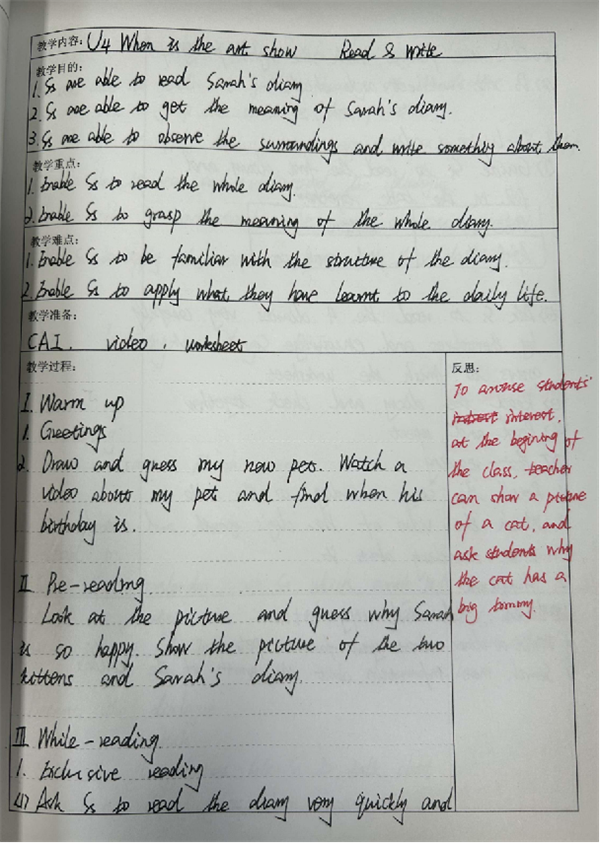 教学内容: U4 When is the art show Read & write
教学目的:
1. Ss are able to read Sarah's diary
2. Ss are able to get the meaning of Sarah's diary.
3. Ss are able to observe the surroundings and write something about them.
教学重点:
1. Enable Ss to read the whole diary.
2. Enable Ss to grasp the meaning of the whole diary.
教学难点:
1. Enable Ss to be familiar with the structure of the diary.
2. Enable Ss to apply what they have learnt to the daily life.
教学准备:
CAI. video. worksheet
教学过程:
I. Warm up
1. Greetings
2. Draw and guess my new pet. Watch a
video about my pet and find when his
birthday is.
II Pre-reading
Look at the picture and guess why Sarah
is so happy. Show the picture of the two
kittens and Sarah's diary.
III While-reading
1. Exclusive reading
(1) Ask Ss to read the diary very quickly and
反思:
To arouse students'
interest,
at the begining of
the class, teacher
can show a picture
of a cat, and
ask students why
the cat has a
big tummy.